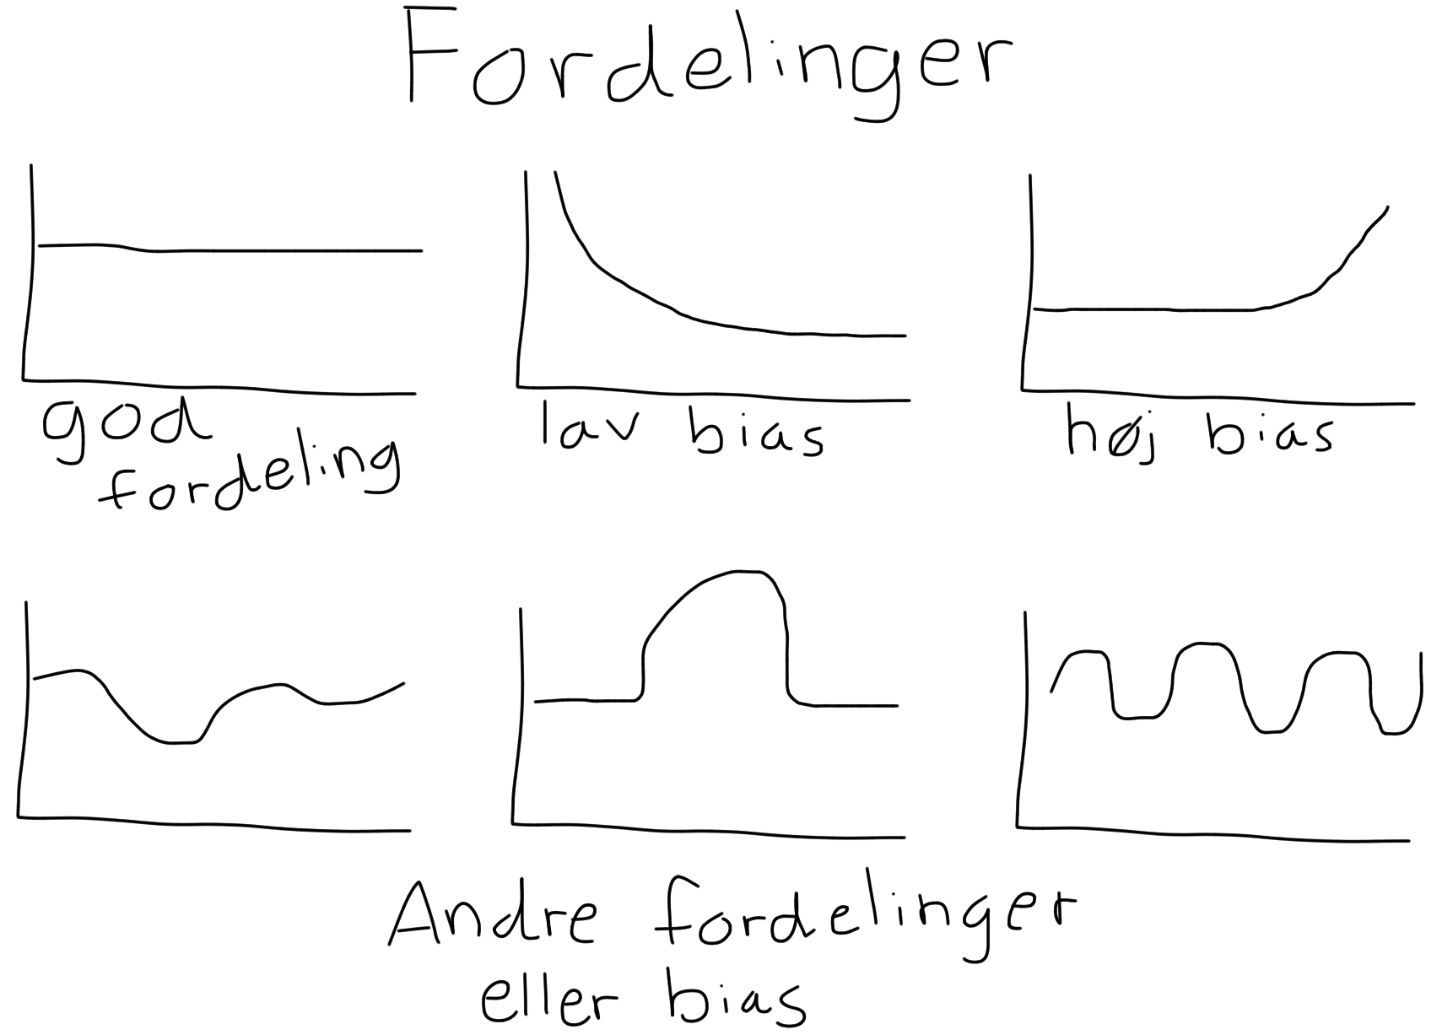 Fordelinger
god
fordeling
lav bias
høj bias
Andre fordelinger
eller bias